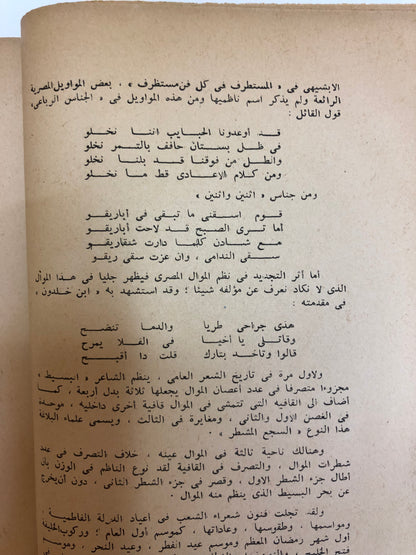 الابشيهى فى « المستطرف فى كل فن مستظرف » ، بعض المواويل المصرية
الرائعة ولم يذكر اسم ناظميها ومن هذه المواويل فى « الجناس الرباعى »
قول القائل :
قد أوعدونا الحبايب اننا نخلو
فى ظل بستان حافف بالثمر نخلو
وانطل من فوقنا قد بلنا نخلو
ومن كلام الاعادى قط ما نخلو
ومن جناس « اثنين واثنين »
قوم اسقنى ما تبقى فى أباريقو
أما ترى الصبح قد لاحت أباريقو
مع شادن كلما دارت شقاريقو
سقى الندامى ، وان عزت سقى ريقو
أما أثر التجديد فى نظم الموال المصرى فيظهر جليا فى هذا الموال
الذى لا نكاد نعرف عن مؤلفه شيئا ؛ وقد استشهد به « ابن خلدون »
فى مقدمته :
هذى جراحى طريا والدما تنضح
وقاتلى يا أخيا فى الفلا يمرح
قالوا وتأخد بتارك قلت دا أقبح
ولاول مرة فى تاريخ الشعر العامى ، ينظم الشاعر « البسيط »
مجزوءا متصرفا فى عدد أغصان الموال يجعلها ثلاثة بدل أربعة ، كما
أضاف الى القافيه التى تتمشى فى الموال قافية أخرى داخليه ، موحدة
فى الغصن الاول والثانى ، ومغايرة فى الثالث ، ويسمى علماء البلاغة
هذا النوع « السجع المشطر »
وهنالك ناحية ثالثة فى الموال عينه ، خلاف التصرف فى عدد
شطرات الموال ، والتصرف فى القافية لقد نوع الناظم فى الوزن بأن
أطال جزء الشطر الاول ، وقصر فى جزء الشطر الثانى ، دون أن يخرج
عن بحر البسيط الذى ينظم منه الموال .
ولقد تجلت فنون شعراء الشعب فى أعياد الدولة الفاطمية ،
ومواسمها ، وطقوسها ، وعاداتها ، كموسم أول العام ؛ وركوب الخليفة
أول شهر رمضان المعظم وموسم عيد الفطر ، وعيد النحر ، وموسم